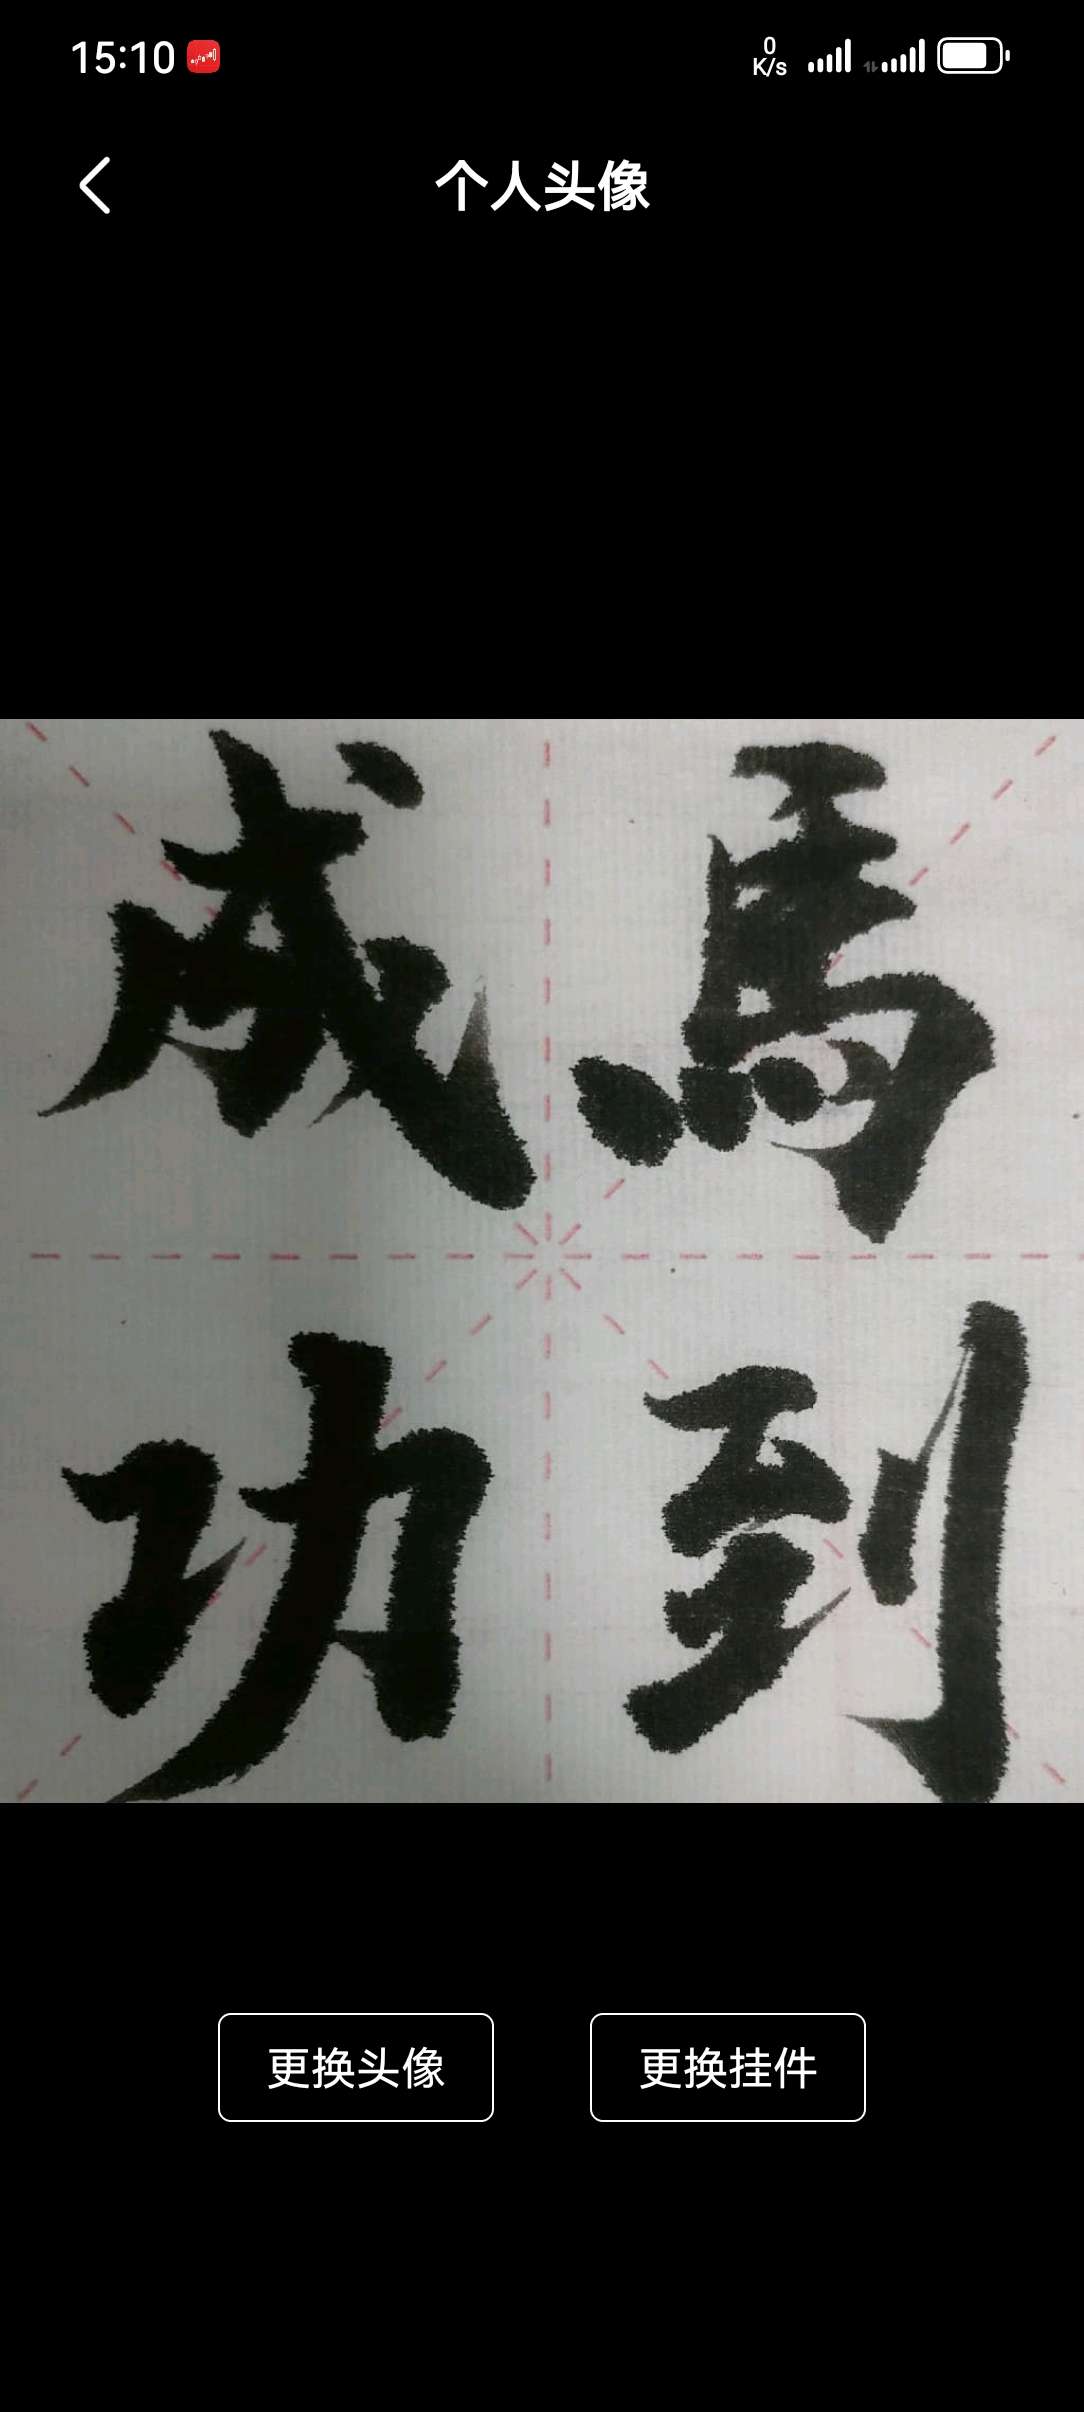 15:10
0
K/s
个人头像
馬到
成功
更换头像
更换挂件